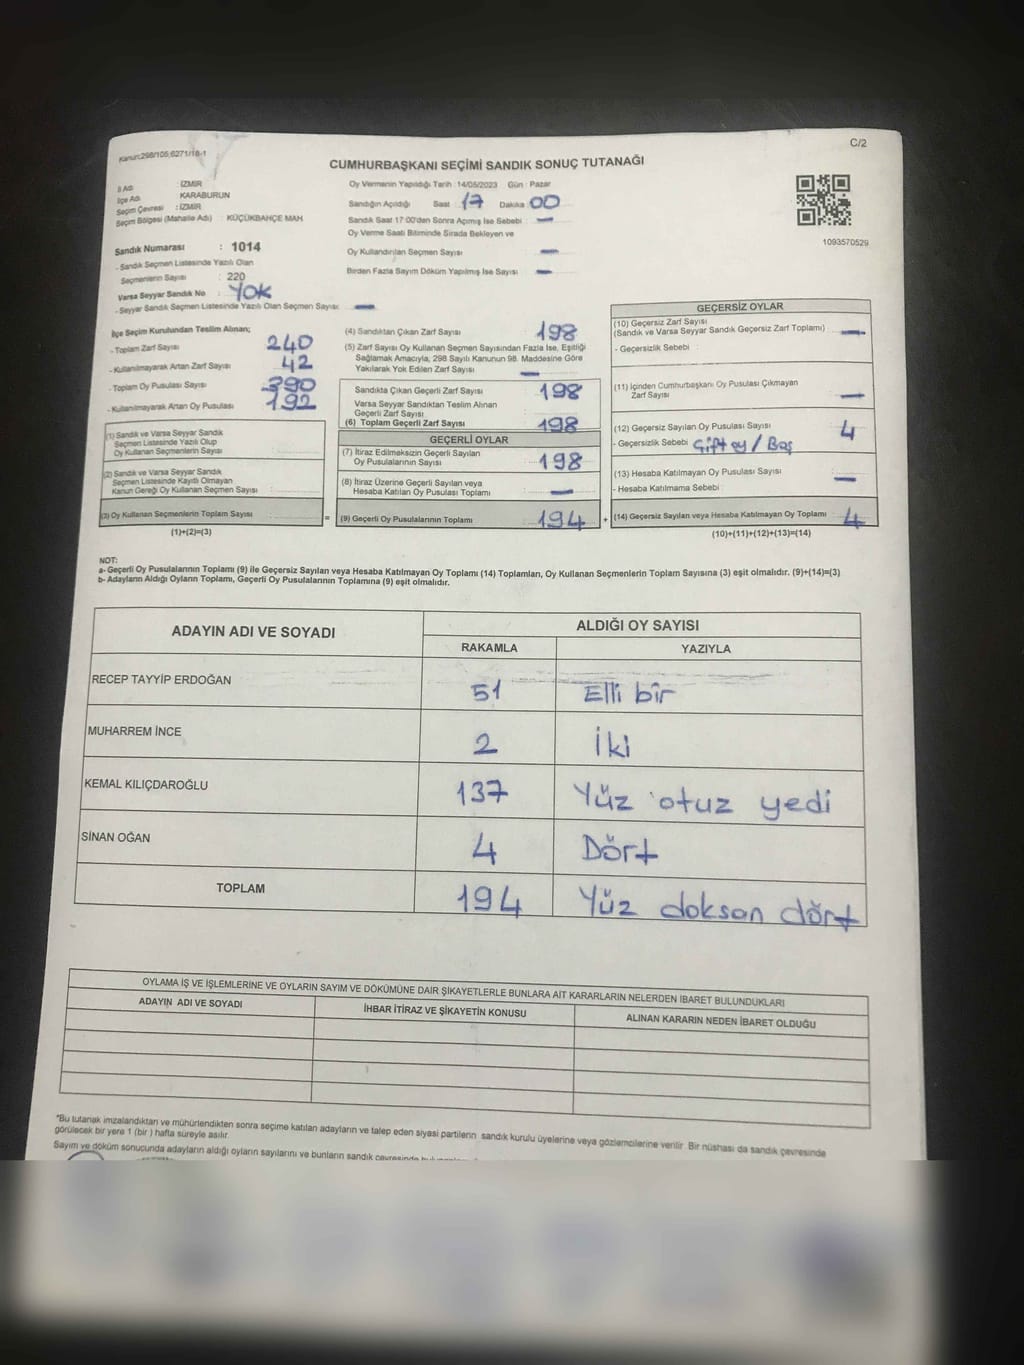 Kanun:298/105;6271/18-1
C/2
CUMHURBAŞKANI SEÇİMİ SANDIK SONUÇ TUTANAĞI
İl Adı : İZMİR
İlçe Adı : KARABURUN
Seçim Çevresi : İZMİR
Seçim Bölgesi (Mahalle Adı) : KÜÇÜKBAHÇE MAH
Sandık Numarası : 1014
- Sandık Seçmen Listesinde Yazılı Olan
Seçmenlerin Sayısı : 220
Varsa Seyyar Sandık No : YOK
- Seyyar Sandık Seçmen Listesinde Yazılı Olan Seçmen Sayısı: —
Oy Vermenin Yapıldığı Tarih : 14/05/2023 Gün : Pazar
Sandığın Açıldığı Saat : 17 Dakika : 00
Sandık Saat 17:00'den Sonra Açımış İse Sebebi : —
Oy Verme Saati Bitiminde Sırada Bekleyen ve
Oy Kullandırılan Seçmen Sayısı : —
Birden Fazla Sayım Döküm Yapılmış İse Sayısı : —
1093570529
İlçe Seçim Kurulundan Teslim Alınan;
- Toplam Zarf Sayısı : 240
- Kullanılmayarak Artan Zarf Sayısı : 42
- Toplam Oy Pusulası Sayısı : 390
- Kullanılmayarak Artan Oy Pusulası : 192
(1) Sandık ve Varsa Seyyar Sandık
Seçmen Listesinde Yazılı Olup
Oy Kullanan Seçmenlerin Sayısı :
(2) Sandık ve Varsa Seyyar Sandık
Seçmen Listesinde Kayıtlı Olmayan
Kanun Gereği Oy Kullanan Seçmen Sayısı :
(3) Oy Kullanan Seçmenlerin Toplam Sayısı :
(1)+(2)=(3)
=
(4) Sandıktan Çıkan Zarf Sayısı : 198
(5) Zarf Sayısı Oy Kullanan Seçmen Sayısından Fazla İse, Eşitliği
Sağlamak Amacıyla, 298 Sayılı Kanunun 98. Maddesine Göre
Yakılarak Yok Edilen Zarf Sayısı : —
Sandıkta Çıkan Geçerli Zarf Sayısı : 198
Varsa Seyyar Sandıktan Teslim Alınan
Geçerli Zarf Sayısı :
(6) Toplam Geçerli Zarf Sayısı : 198
GEÇERLİ OYLAR
(7) İtiraz Edilmeksizin Geçerli Sayılan
Oy Pusulalarının Sayısı : 198
(8) İtiraz Üzerine Geçerli Sayılan veya
Hesaba Katılan Oy Pusulası Toplamı : —
(9) Geçerli Oy Pusulalarının Toplamı : 194
+
GEÇERSİZ OYLAR
(10) Geçersiz Zarf Sayısı
(Sandık ve Varsa Seyyar Sandık Geçersiz Zarf Toplamı) : —
- Geçersizlik Sebebi :
(11) İçinden Cumhurbaşkanı Oy Pusulası Çıkmayan
Zarf Sayısı : —
(12) Geçersiz Sayılan Oy Pusulası Sayısı : 4
- Geçersizlik Sebebi : Çift oy / Boş
(13) Hesaba Katılmayan Oy Pusulası Sayısı : —
- Hesaba Katılmama Sebebi :
(14) Geçersiz Sayılan veya Hesaba Katılmayan Oy Toplamı : 4
(10)+(11)+(12)+(13)=(14)
NOT:
a- Geçerli Oy Pusulalarının Toplamı (9) ile Geçersiz Sayılan veya Hesaba Katılmayan Oy Toplamı (14) Toplamları, Oy Kullanan Seçmenlerin Toplam Sayısına (3) eşit olmalıdır. (9)+(14)=(3)
b- Adayların Aldığı Oyların Toplamı, Geçerli Oy Pusulalarının Toplamına (9) eşit olmalıdır.
ADAYIN ADI VE SOYADI ALDIĞI OY SAYISI
RAKAMLA YAZIYLA
RECEP TAYYİP ERDOĞAN 51 Elli bir
MUHARREM İNCE 2 İki
KEMAL KILIÇDAROĞLU 137 Yüz otuz yedi
SİNAN OĞAN 4 Dört
TOPLAM 194 Yüz doksan dört
OYLAMA İŞ VE İŞLEMLERİNE VE OYLARIN SAYIM VE DÖKÜMÜNE DAİR ŞİKAYETLERLE BUNLARA AİT KARARLARIN NELERDEN İBARET BULUNDUKLARI
ADAYIN ADI VE SOYADI İHBAR İTİRAZ VE ŞİKAYETİN KONUSU ALINAN KARARIN NEDEN İBARET OLDUĞU
*Bu tutanak imzalandıktan ve mühürlendikten sonra seçime katılan adayların ve talep eden siyasi partilerin sandık kurulu üyelerine veya gözlemcilerine verilir. Bir nüshası da sandık çevresinde
görülecek bir yere 1 (bir) hafta süreyle asılır.
Sayım ve döküm sonucunda adayların aldığı oyların sayılarını ve bunların sandık çevresinde